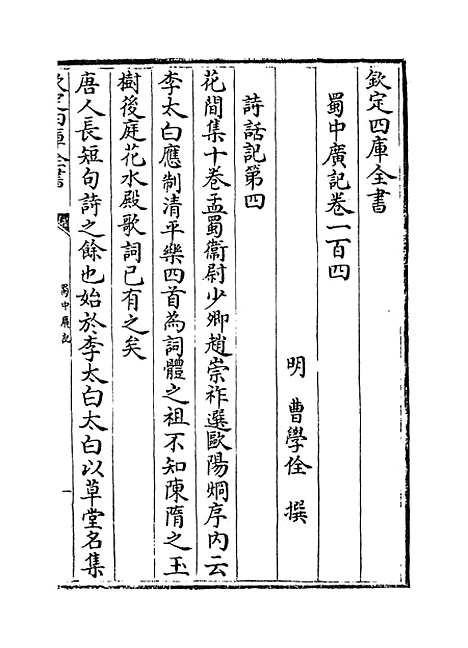 欽定四庫全書
蜀中廣記卷一百四
明 曹學佺 撰
詩話記第四
花間集十卷孟蜀衞尉少卿趙崇祚選歐陽烱序內云
李太白應制清平樂四首為詞體之祖不知陳隋之玉
樹後庭花水殿歌詞已有之矣
唐人長短句詩之餘也始於李太白太白以草堂名集
欽定四庫全書
蜀中廣記
一